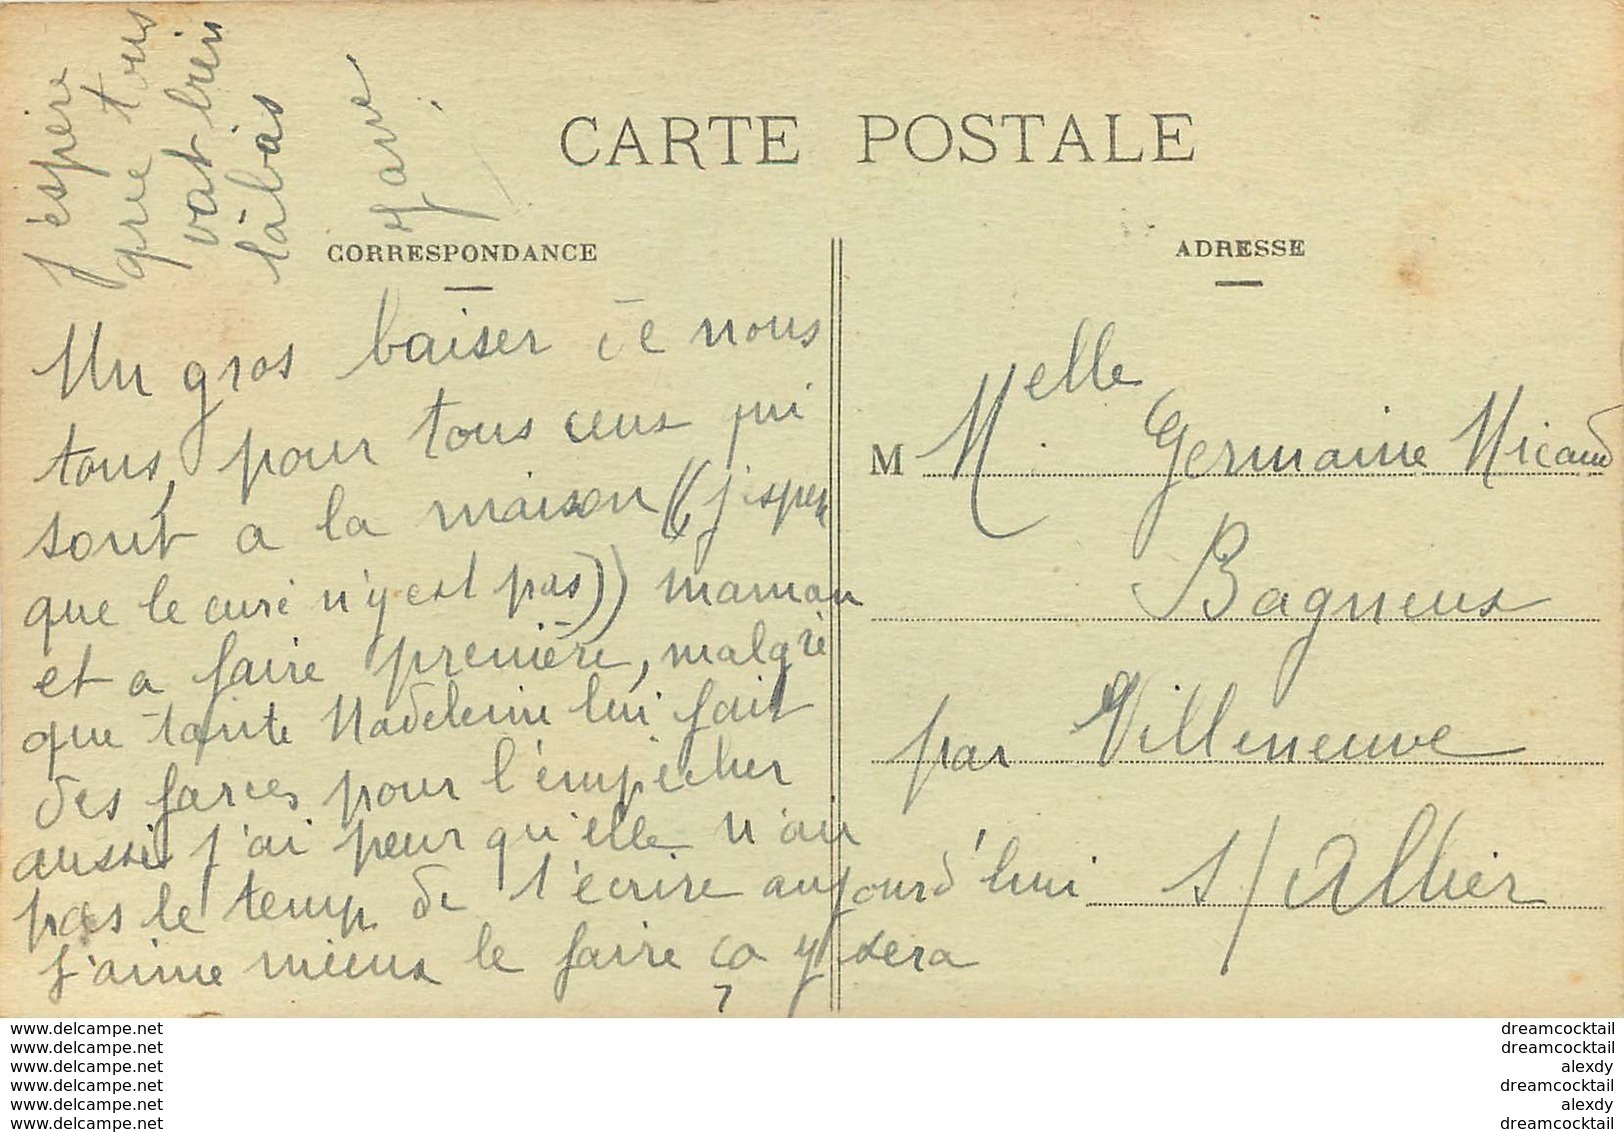 CARTE POSTALE
CORRESPONDANCE
ADRESSE
Un gros baiser de nous
tous, pour tous ceux qui
sont a la maison ((j'esper
que le curé n'y est pas)) maman
et a faire première, malgré
que tante Madeleine lui fait
des farces pour l'empêcher
aussi j'ai peur qu'elle n'au
pas le temp de t'écrire aujourd'hui
j'aime mieux le faire ça y sera
J'éspère
que tous
vat bien
làbas
M Melle Germaine Nicaud
Bagneux
par Villeneuve
s/Allier
www.delcampe.net
www.delcampe.net
www.delcampe.net
www.delcampe.net
www.delcampe.net
www.delcampe.net
dreamcocktail
dreamcocktail
alexdy
dreamcocktail
alexdy
dreamcocktail